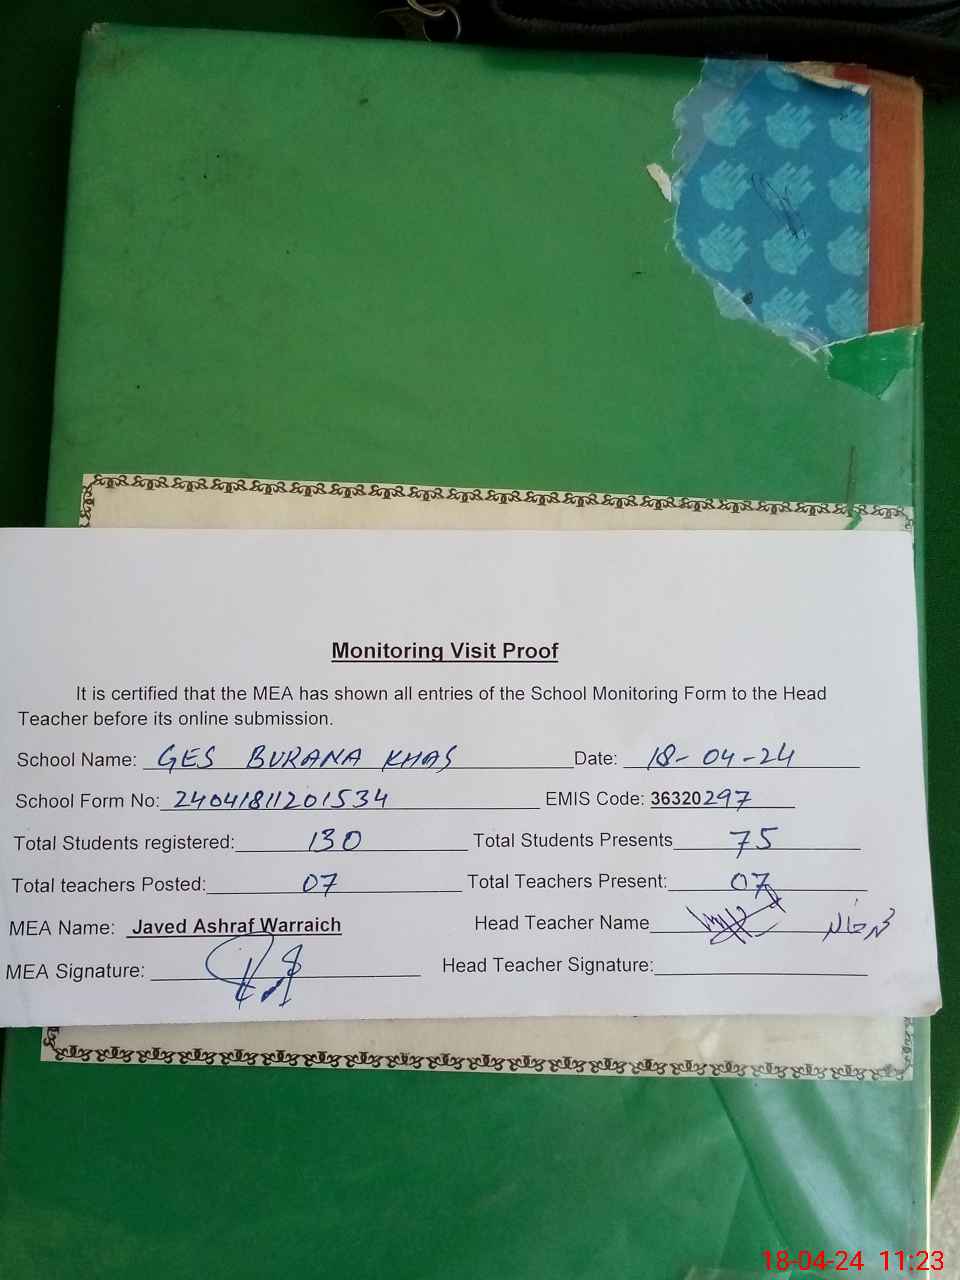 Monitoring Visit Proof
It is certified that the MEA has shown all entries of the School Monitoring Form to the Head
Teacher before its online submission.
School Name: GES BURANA KHAS Date: 18-04-24
School Form No: 24041811201534 EMIS Code: 36320297
Total Students registered: 130 Total Students Presents 75
Total teachers Posted: 07 Total Teachers Present: 07
MEA Name: Javed Ashraf Warraich Head Teacher Name
MEA Signature: Head Teacher Signature:
18-04-24 11:23